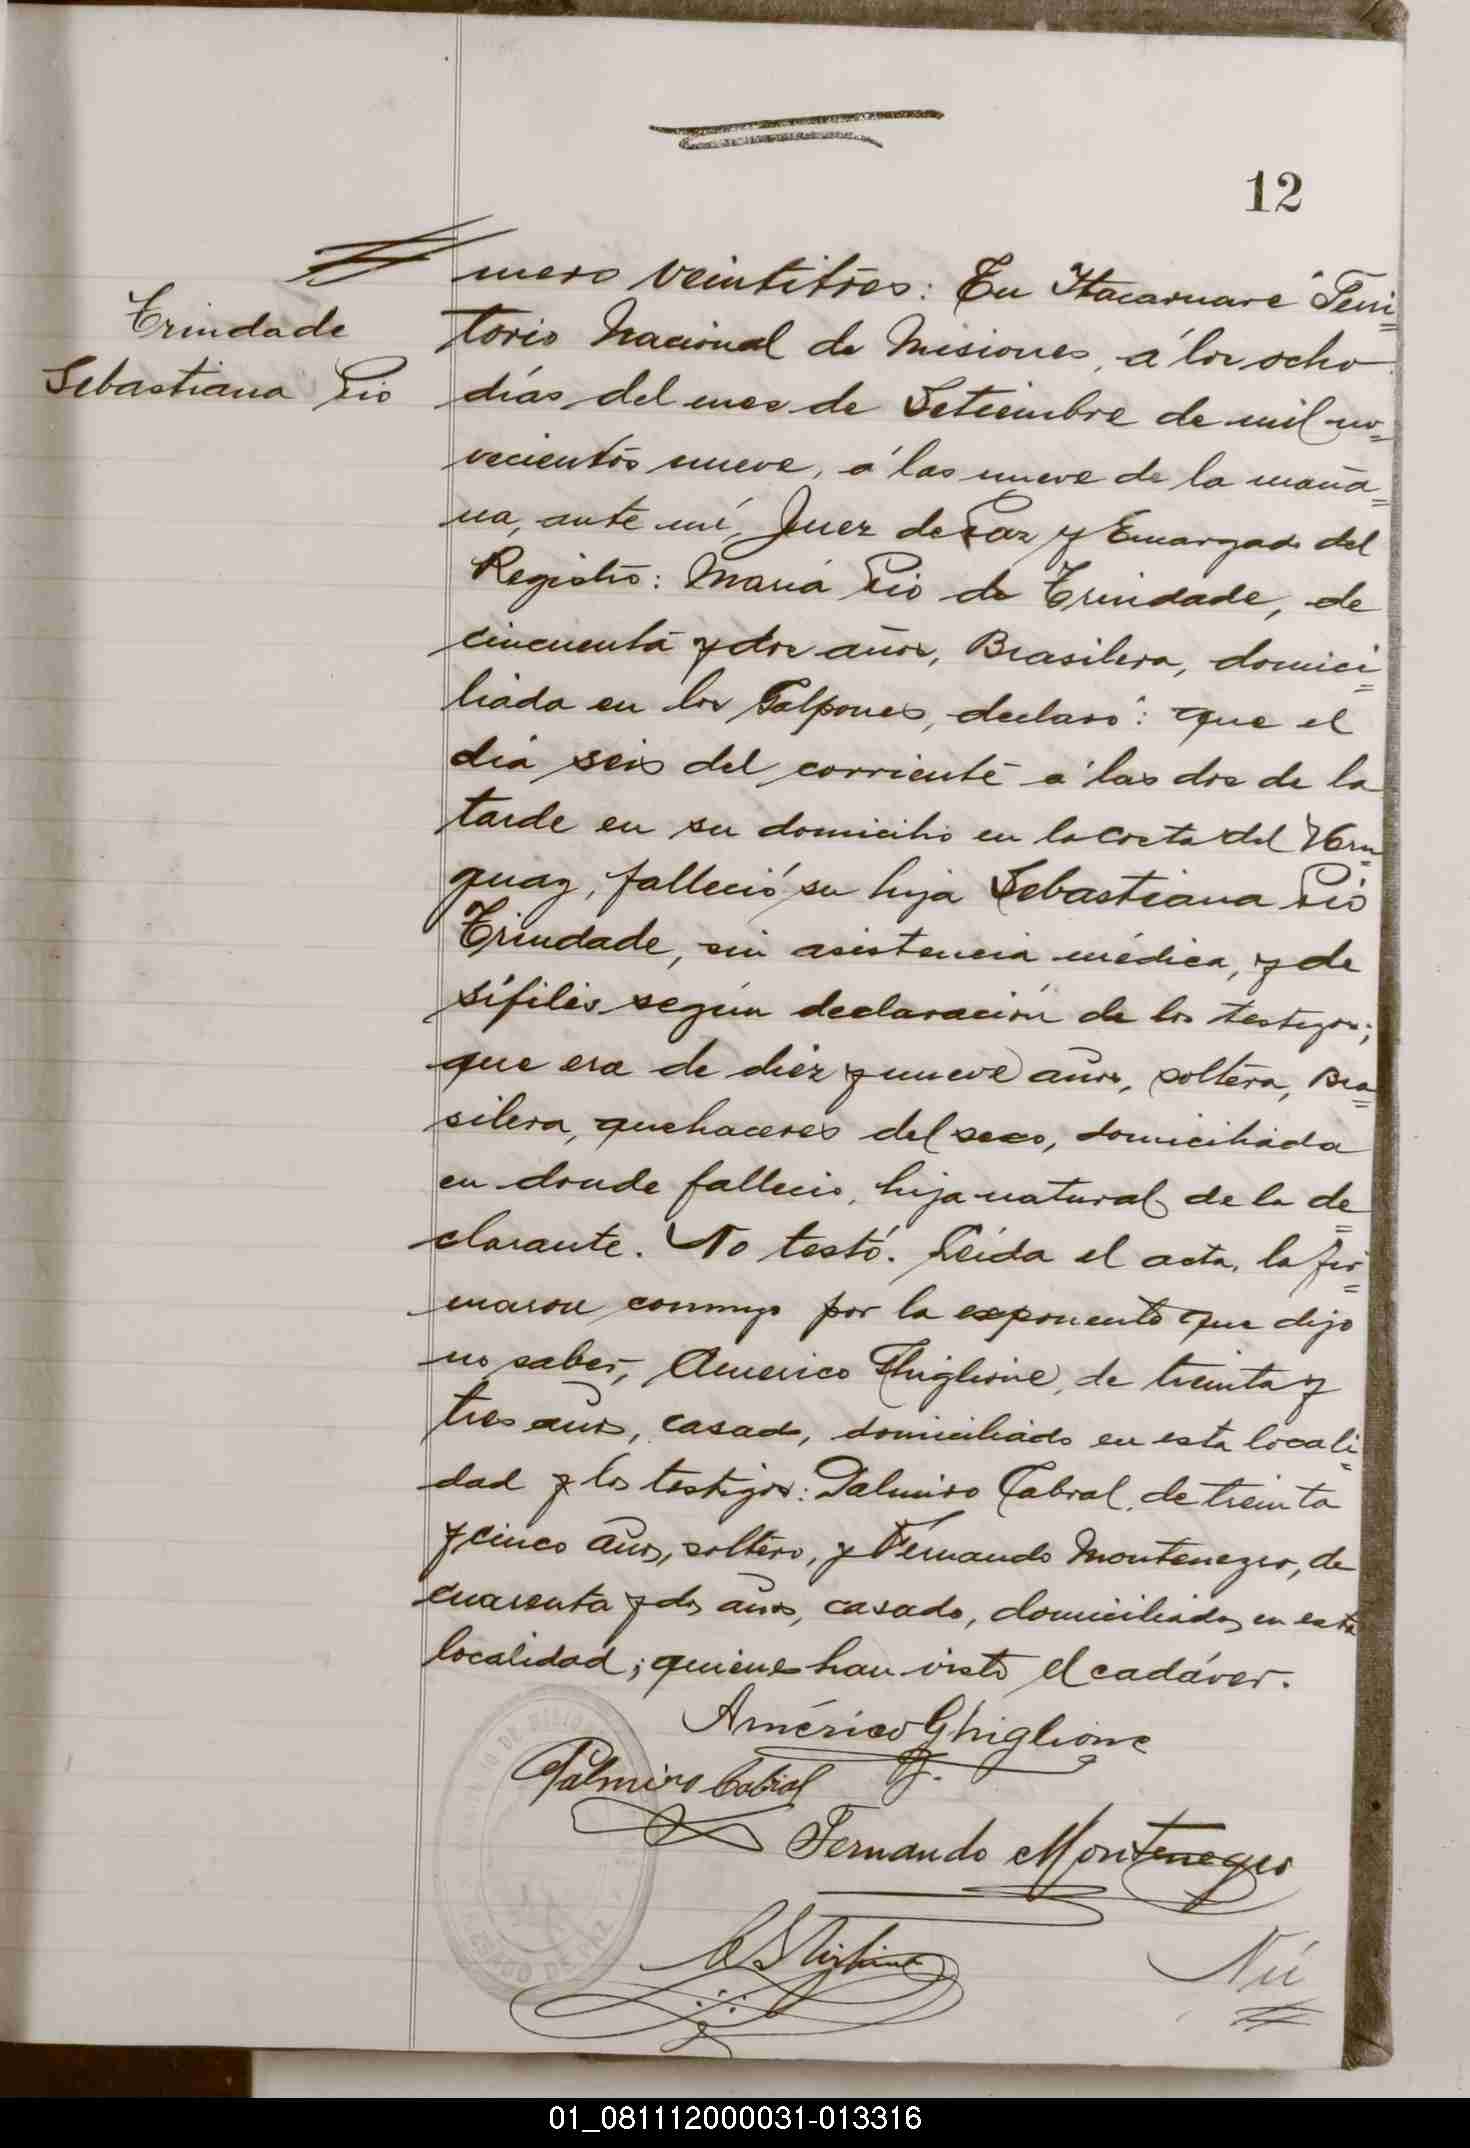 12
Trindade
Sebastiana Pio
mero veintitres: En Itacaruaré Terri=
torio Nacional de Misiones, á los ocho
días del mes de Setiembre de mil no=
vecientos nueve, á las nueve de la maña=
na, ante mí, Juez de Paz y Encargado del
Registro: María Pio de Trindade, de
cincuenta y dos años, Brasilera, domici=
liada en los Galpones, declaró: que el
día seis del corriente á las dos de la
tarde en su domicilio en la costa del Uru=
guay, falleció su hija Sebastiana Pio
Trindade, sin asistencia médica, y de
sífilis según declaración de los testigos;
que era de diez y nueve años, soltera, Bra=
silera, quehaceres del sexo, domiciliada
en donde fallecio, hija natural de la de=
clarante. No testó. Leida el acta, la fir=
maron conmigo por la exponente que dijo
no saber, Americo Ghiglione, de treinta y
tres años, casado, domiciliado en esta locali=
dad y los testigos: Palmiro Cabral, de treinta
y cinco años, soltero, y Fernando Montenegro, de
cuarenta y dos años, casado, domiciliados en esta
localidad; quienes han visto el cadáver.
Américo Ghiglione
Palmiro Cabral
Fernando Montenegro
Nú
01_081112000031-013316